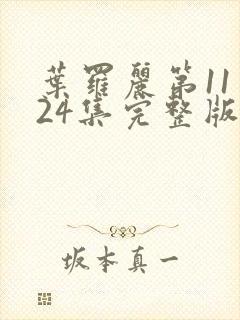 葉羅麗第11
24集完整版
坂本真一